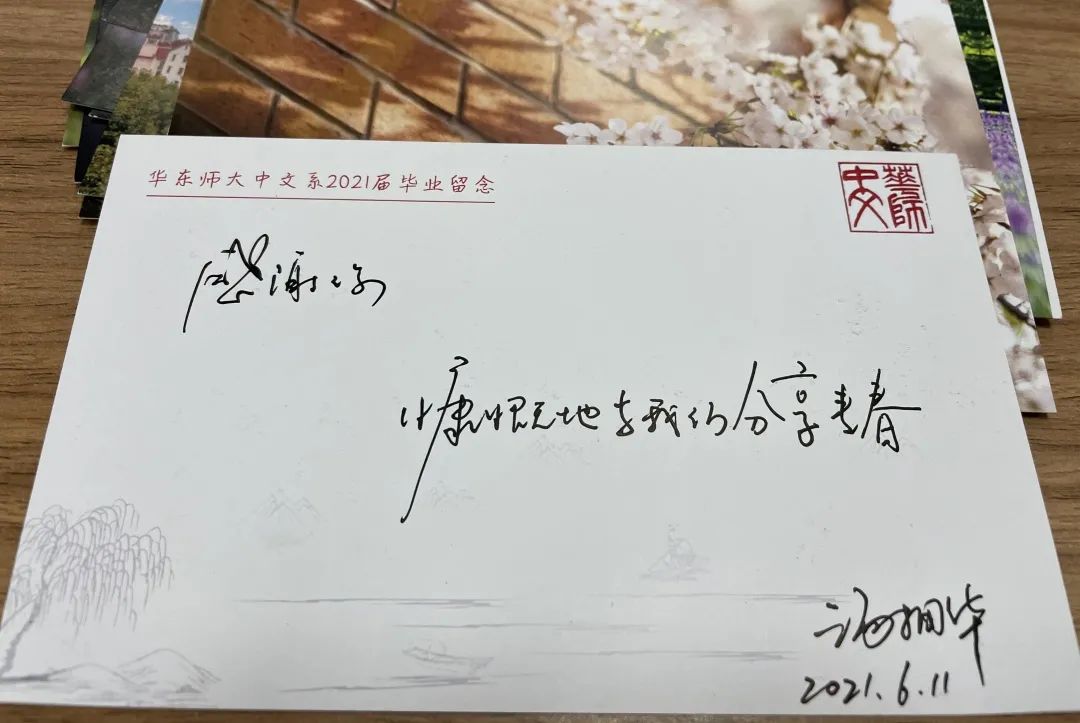 华东师大中文系2021届毕业留念
華師
中文
感谢你
慷慨地与我们分享青春
汤拥华
2021.6.11